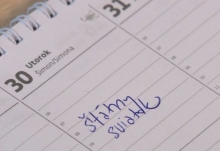 31
30 Utorok
Šimon/Simona
štátny
sviatok